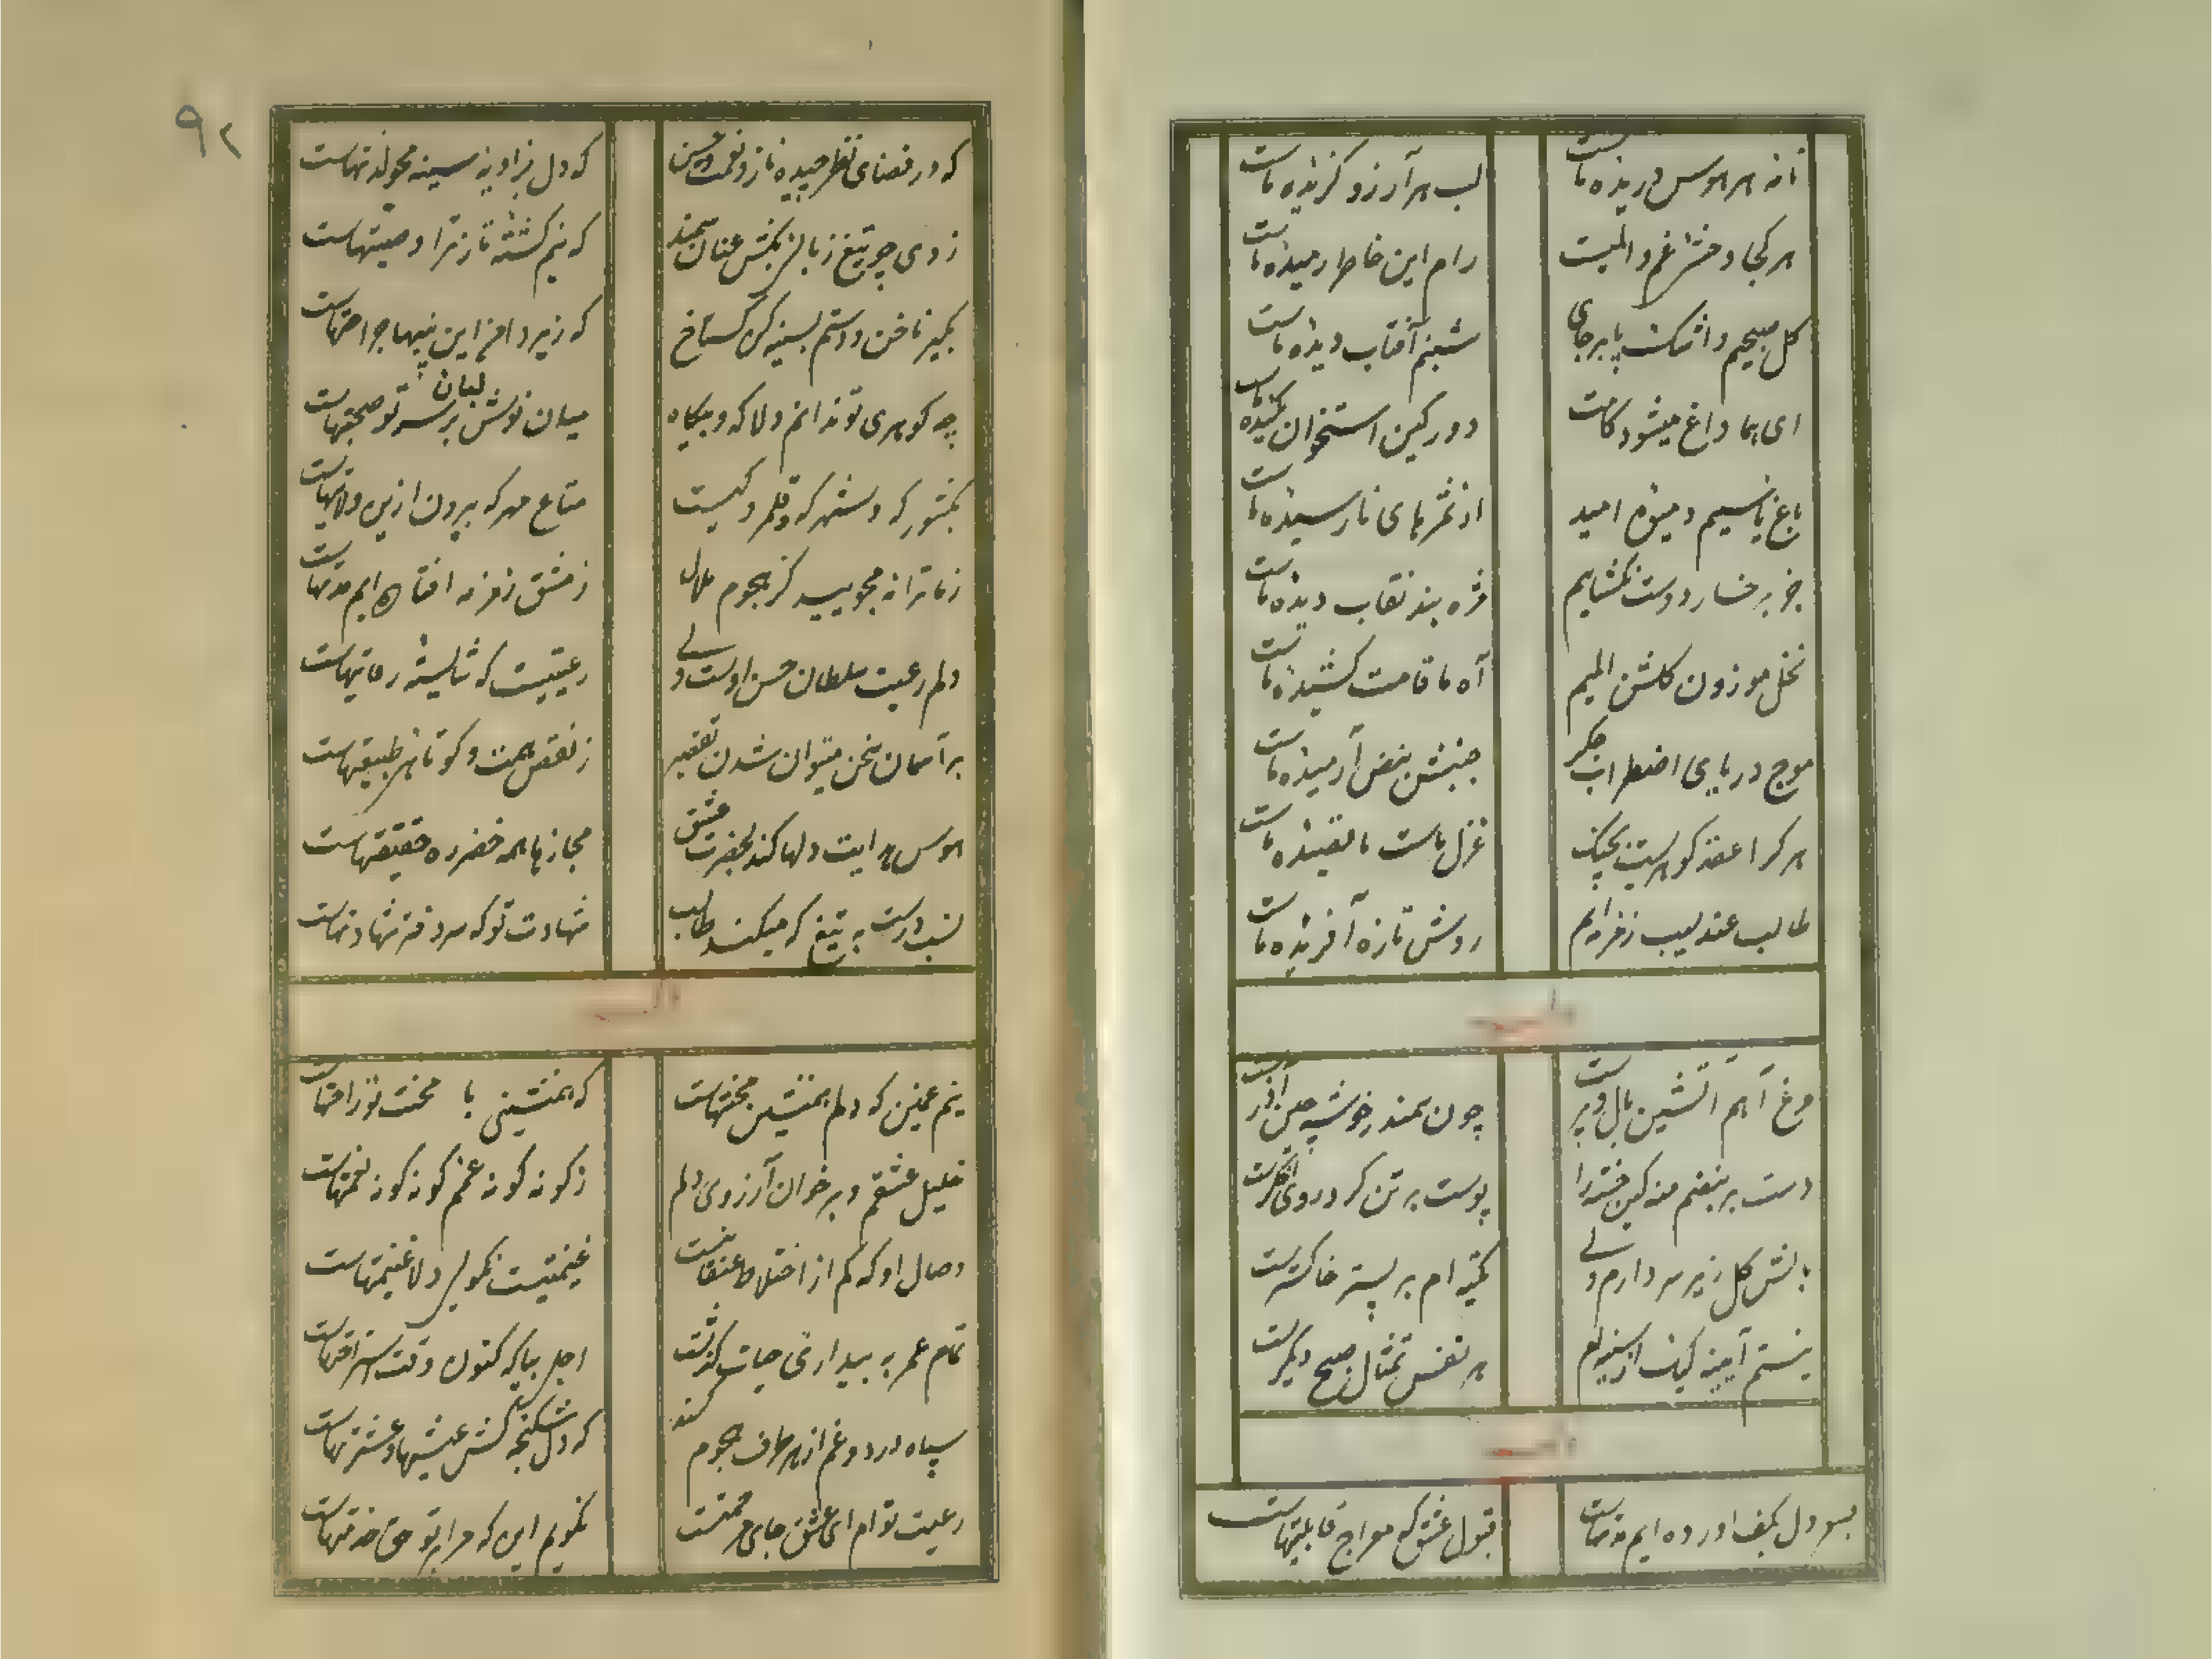 نامه هر هوس دریده ماست
لب هر آرزو گزیده ماست
هر کجا وحشی غم و المیست
رام این خاطر رمیده ماست
گل صبحیم و اشک پا برجای
شبنم آفتاب دیده ماست
ای هما داغ میشود کامت
دور کین استخوان مکیده ماست
باغ یاسیم و میوه امید
از ثمرهای نارسیده ماست
جز برخسار دوست نگشاییم
مژه بند نقاب دیده ماست
نخل موزون گلشن المیم
آه ما قامت کشیده ماست
موج دریای اضطراب جگر
جنبش نبض آرمیده ماست
هر کرا عقد گوهریست بچنگ
غزل ماست یا قصیده ماست
طالب عندلیب زمزمه ایم
روش تازه آفریده ماست
مرغ آهم آتشین بال و پرست
چون سمندر خوشه چین آذرست
دست بر نبضم منه کین خسته را
پوست بر تن گرد روی اخگرست
بالش گل زیر سر دارم ولی
تکیه ام بر بستر خاکسترست
نیستم آیینه لیک از سینه ام
هر نفس تمثال صبح دیگرست
بسعی دل بکف آورده ایم مدتهاست
قبول عشق که معراج قابلیتهاست
۹۲
که در فضای نظر چیده ناز و نعمت حسن
که دل بزاویه سینه محو لذتهاست
ز وی چو تیغ زبانی بکش عنان سمند
که نیم کشته ناز ترا وصیتهاست
بگیر ناخن و دستم بسینه کن گستاخ
که زیر دامن این پنبها جراحتهاست
چه گوهری تو ندانم دلا که گه و بیگاه
میان نوش لبان بر سر تو صحبتهاست
بکشور که و شهر که و قلمرو کیست
متاع مهر که بیرون ازین ولایتهاست
ز ما ترانه مجویید کز هجوم ملال
ز مشق زمزمه افتاده ایم مدتهاست
دلم رعیت سلطان حسن اوست ولی
رعیتیست که شایسته رعایتهاست
بر آسمان سخن میتوان شدن تقصیر
ز نقص همت و کوتاهی طبیعتهاست
هوس هدایت دلها کند بحضرت عشق
مجازها همه خضر ره حقیقتهاست
نسب درست به تیغ که میکند طالب
شهادت تو که سردفتر شهادتهاست
نیم غمین که دلم همنشین محنتهاست
که همنشینی با محنت تو راحتهاست
خلیل عشقم و بر خوان آرزوی دلم
ز گونه گونه غم گونه گونه نعمتهاست
وصال او که کم از اختلاط عنقا نیست
غنیمتیست نکو لی ولا غنیمتهاست
تمام عمر به بیداری حیات گذشت
اجل بیا که کنون وقت استراحتهاست
سپاه درد و غم از هر طرف هجوم کنند
که دل شکنجه کش عیشها و عشرتهاست
رعیت توام ای عشق جای مرحمتست
نگویم این که مرا بر تو حق خدمتهاست